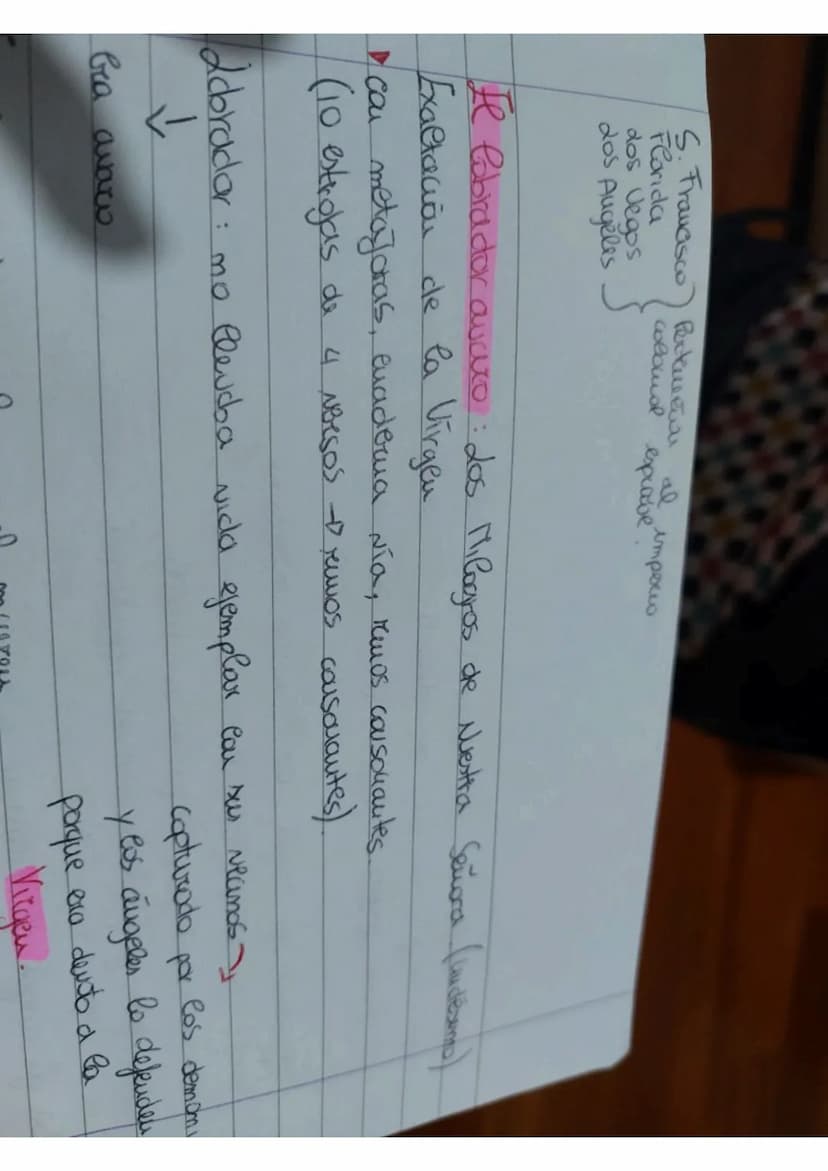 S. Francisco
Florida
dos Vegos
dos Angeles
Pertenecían al imperio
colonial español.
El labrador avaro: Los Milagros de Nuestra Señora
Exaltación de la Virgen
con metáforas, cuaderna vía, rimos consonantes.
(10 estrofas de 4 versos → rimos consonantes)
Labrador: no llevaba vida ejemplar con sus vecinos
Era avaro
capturado por los demoni
y los ángeles lo defienden
porque era devoto a la
Virgen.